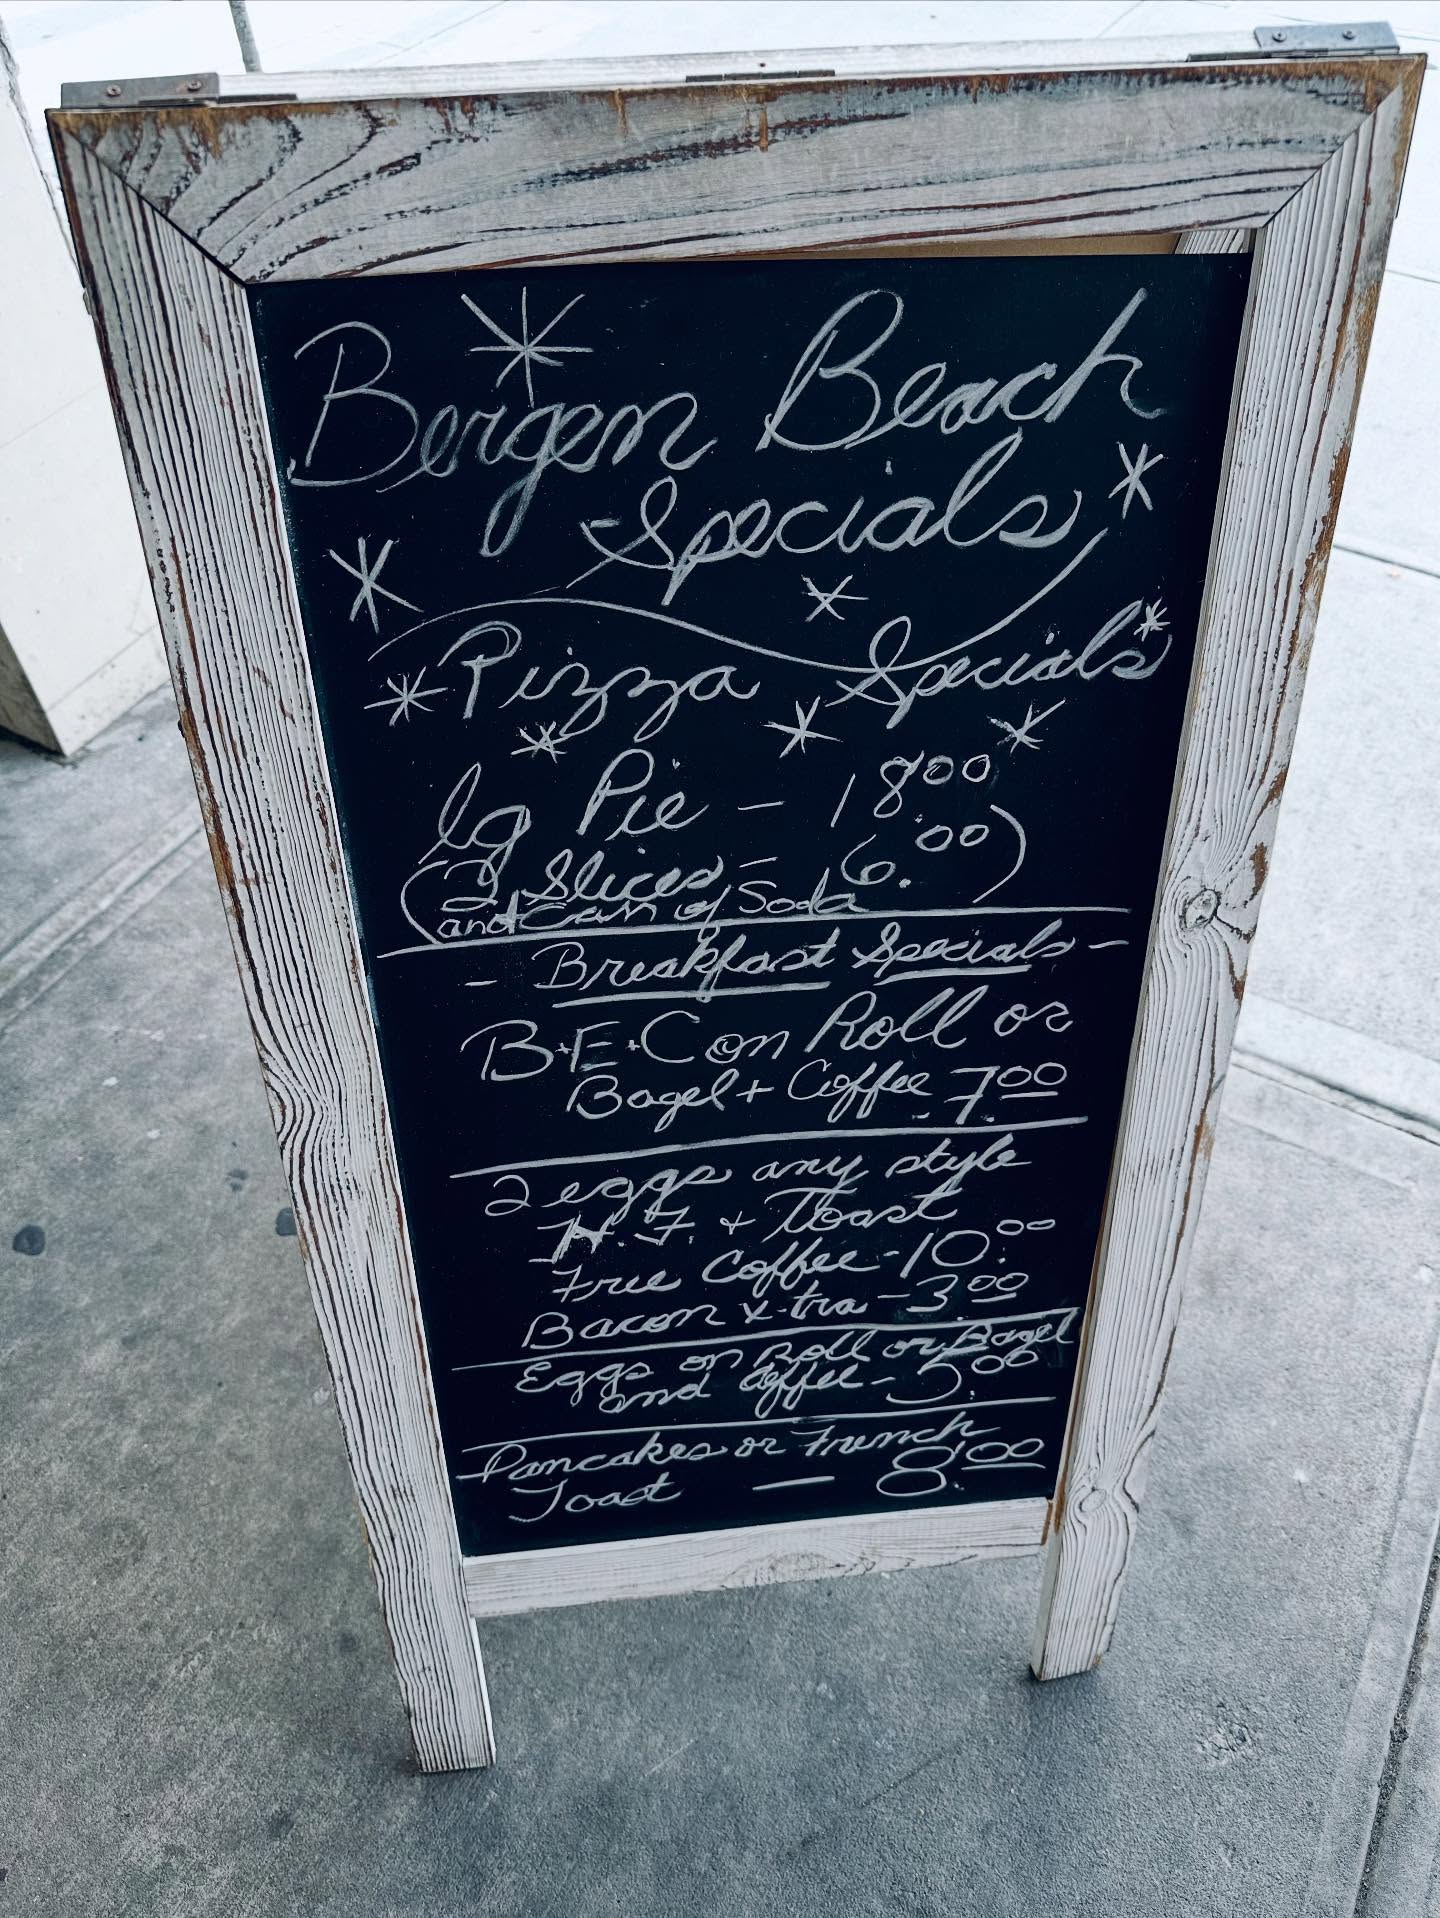 Bergen Beach
Specials
Pizza Specials
lg Pie - 18.00
(2 Slices - 6.00)
and Can of Soda
- Breakfast Specials -
B+E+C on Roll or
Bagel + Coffee 7.00
2 eggs any style
H.F. + Toast
Free Coffee - 10.00
Bacon x-tra - 3.00
Eggs on Roll or Bagel
and Coffee - 5.00
Pancakes or French
Toast — 8.00